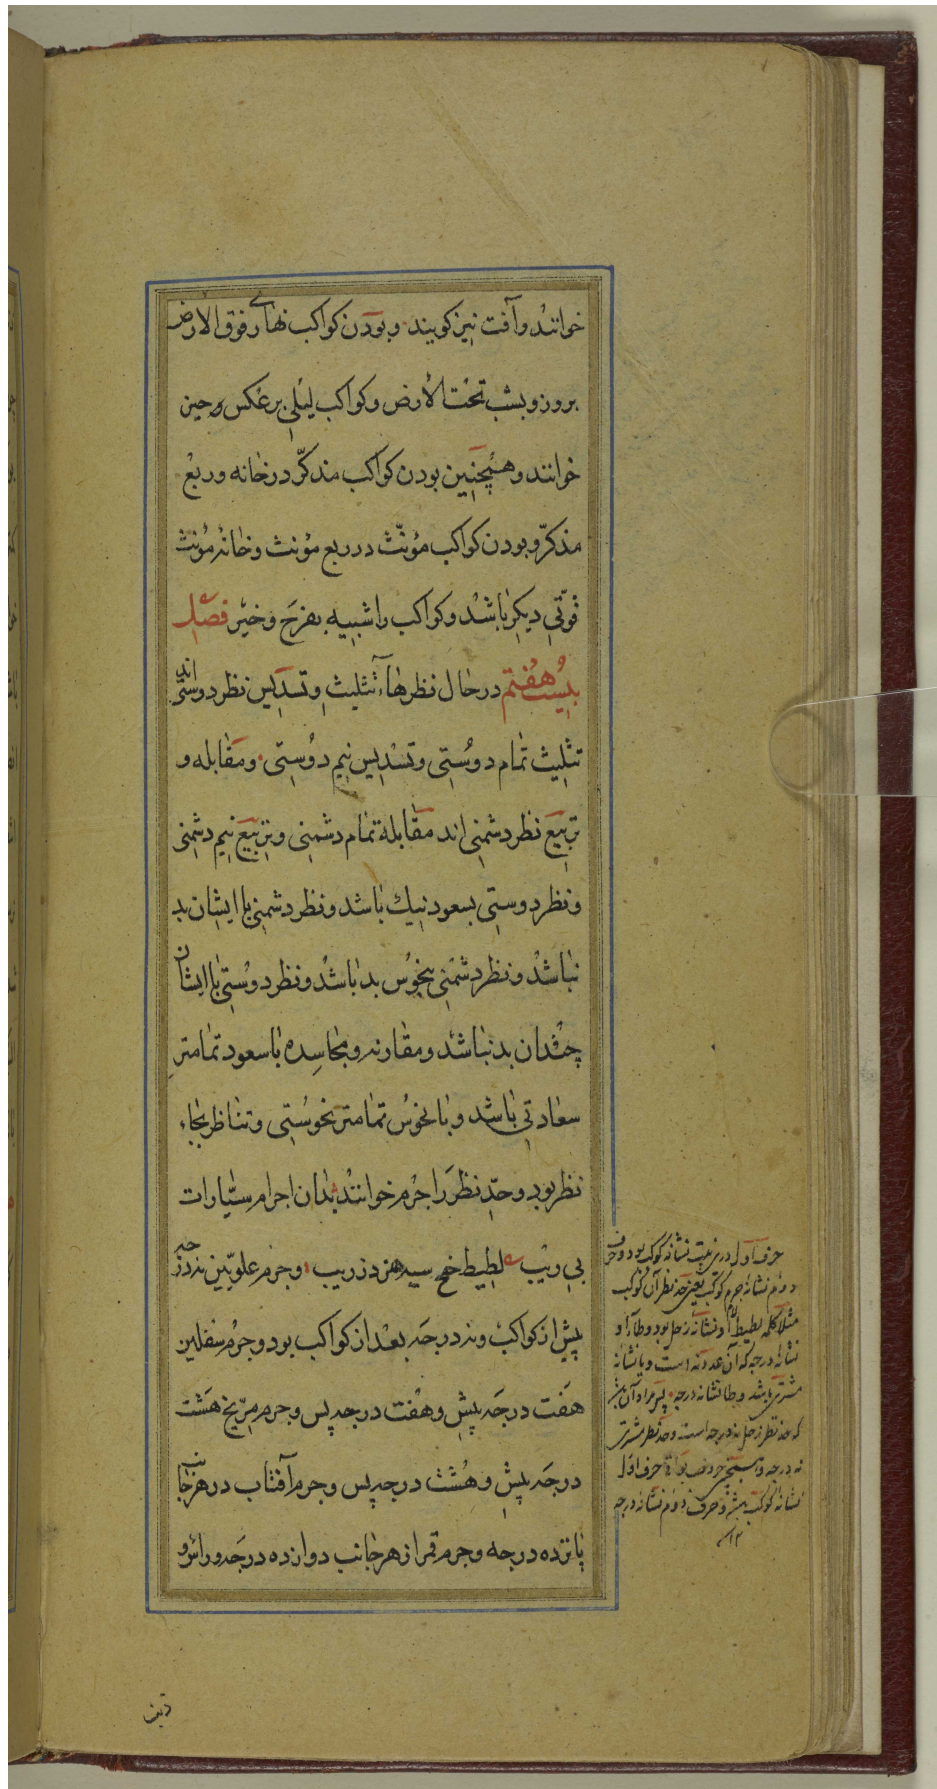 خوانند و آفت نیز کویند و بودن کواکب نهاری فوق الارض
بروز و بشب تحت الارض و کواکب لیلی برعکس حین
خوانند و همچنین بودن کواکب مذکّر در خانه و ربع
مذکّر و بودن کواکب مؤنّث در ربع مؤنث و خانهٔ مؤنث
قوّتی دیکر باشد و کواکب را شبیه بفرح و خیّر فصل
بیست هفتم در حال نظرها تثلیث و تسدیس نظر دوستی اند
تثلیث تمام دوستی و تسدیس نیم دوستی و مقابله و
تربیع نظر دشمنی اند مقابله تمام دشمنی و تربیع نیم دشمنی
و نظر دوستی بسعود نیك باشد و نظر دشمنی با ایشان بد
نباشد و نظر دشمنی بنحوس بد باشد و نظر دوستی با ایشان
چندان بد نباشد و مقارنه و مجاسده با سعود تمامتر
سعادتی باشد و با نحوس تمامتر نحوستی و تناظر بجاء
نظر بود و حدّ نظر را جرم خوانند بدان اجرام سیّارات
بی ریب لطیط خح سیه هز دز ریب و جرم علویّین نه درجه
پیش از کواکب و نه درجه بعد از کواکب بود و جرم سفلین
هفت درجه پیش و هفت درجه پس و جرم مریخ هشت
درجه پیش و هشت درجه پس و جرم آفتاب در هر جانب
پانزده درجه و جرم قمر از هر جانب دوازده درجه و رائس و
حرف اول درین بیت نشانه کوکب بود و حرف
دوم نشانه جرم کوکب یعنی حد نظر آن کوکب
مثلا کلمه لطیط لام او نشانه زحل بود و طا را و
نشانه درجه که آن عدد نه است و یا نشانه
مشتری باشد و طا نشانه درجه پس مراد آن باشد
که حد نظر زحل نه درجه است و حد نظر مشتری
نه درجه و حرف اول
نشانه کوکب باشد و حرف دوم نشانه درجه
۱۲
ذنب